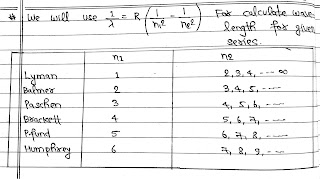 * We will use 1/λ = R (1/n₁² - 1/n₂²) For calculate wave-
length for given
series.
n₁ n₂
Lyman 1 2, 3, 4, ---- ∞
Balmer 2 3, 4, 5, ----
Paschen 3 4, 5, 6, ----
Brackett 4 5, 6, 7, ----
P-fund 5 6, 7, 8, ----
Humphrey 6 7, 8, 9, ----